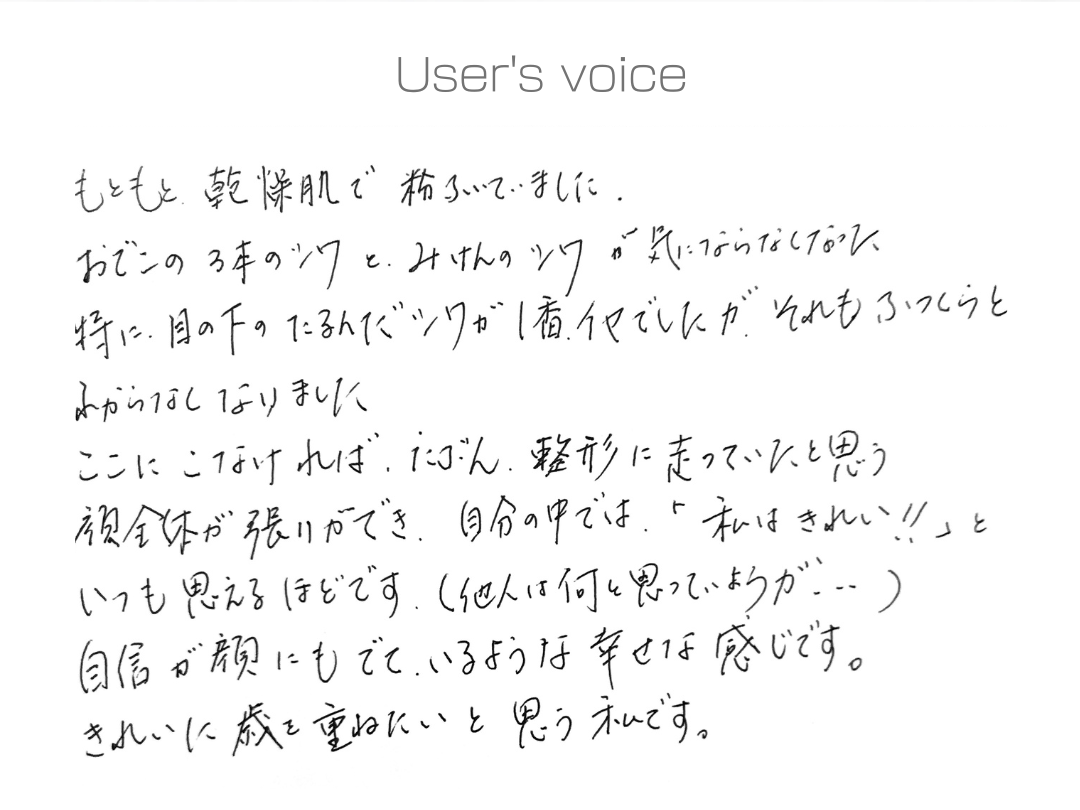 User's voice
もともと、乾燥肌で 粉ふいていました.
おでこの 3本のシワ と、みけんの シワ が 気にならなくなった
特に、目の下の たるんだシワが 1番、イヤでしたが、それも ふっくらと
わからなく なりました
ここに こなければ、たぶん、整形に走っていたと思う
顔全体が 張りができ、自分の中では、「私は きれい!!」と
いつも 思えるほどです.(他人は何と思っていようが…)
自信が顔にも でているような 幸せな 感じです。
きれいに 歳を重ねたいと 思う 私です。